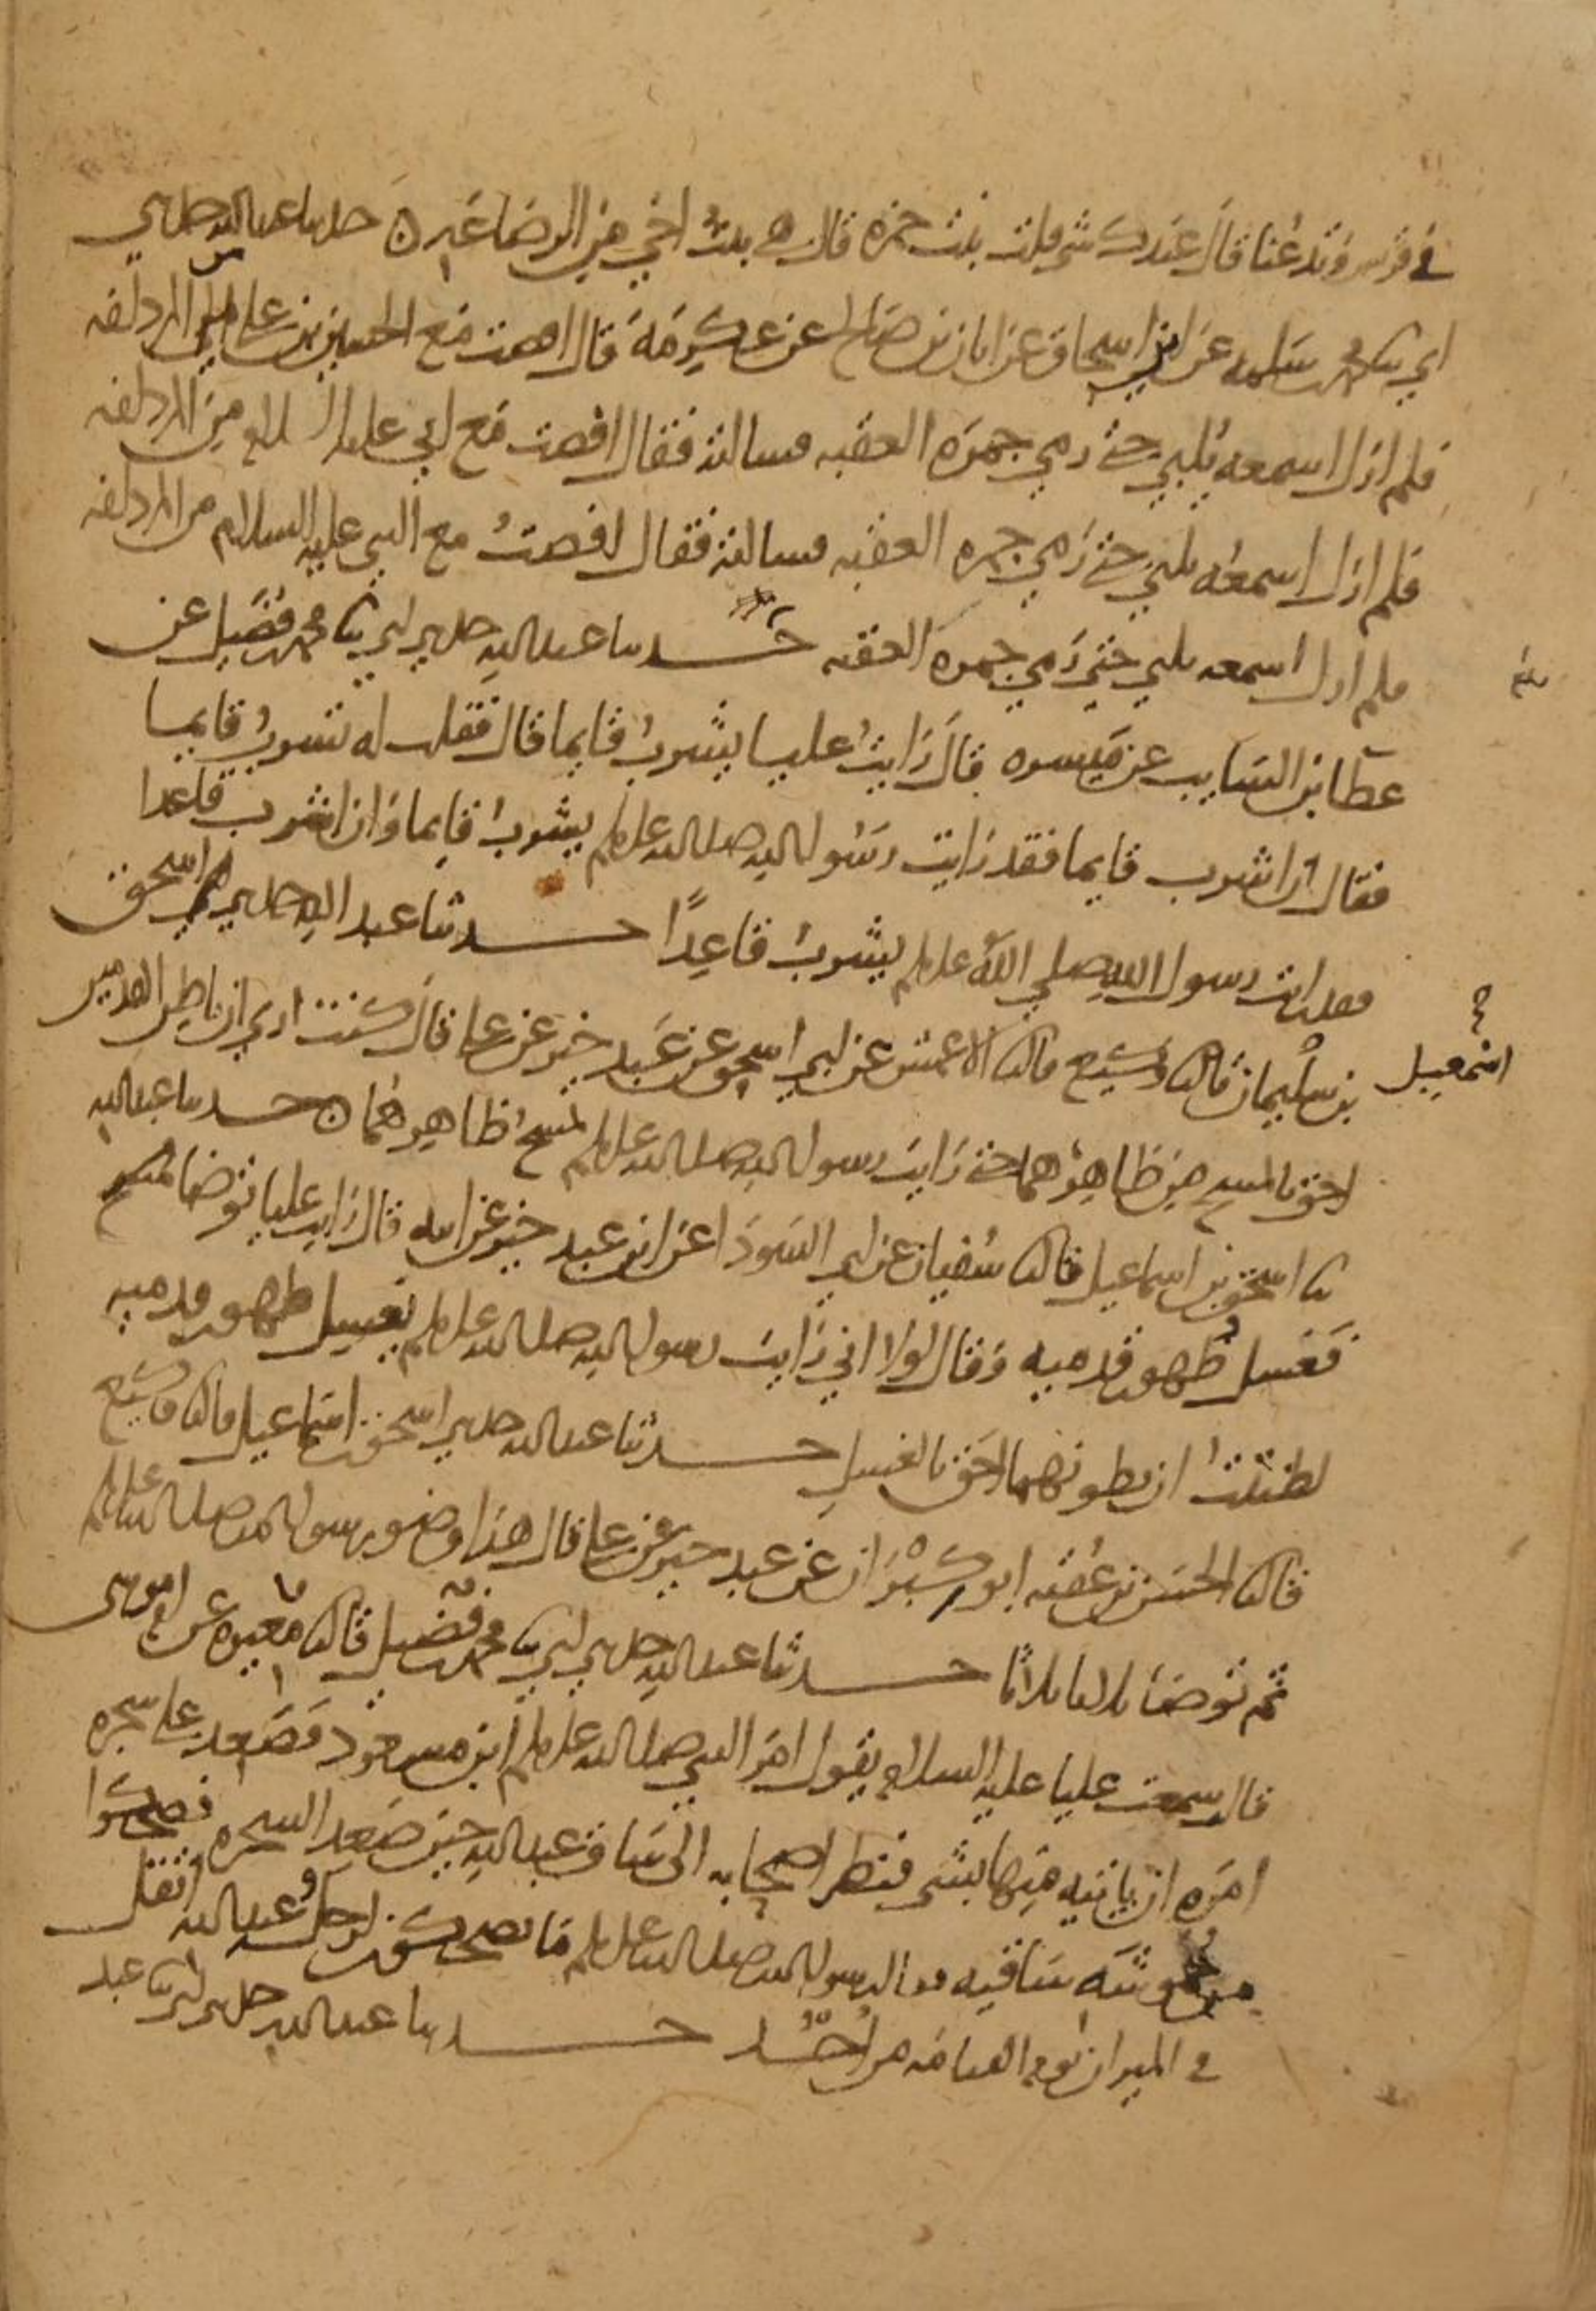 في قريش وتدعنا قال عندك شي قلت بنت حمزه قال هي بنت اخي من الرضاعه ں حدثنا عبد الله حدثني
ابي ثنا محمد بن سلمه عن ابن اسحاق عن ابان بن صالح عن عكرمة قال افضت مع الحسين بن علي من المزدلفه
فلم ازل اسمعه يلبي حتى رمي جمرة العقبه فسالته فقال افضت مع ابي عليه السلام من المزدلفه
فلم ازل اسمعه يلبي حتى رمي جمره العقبه فسالته فقال افضت مع النبي عليه السلام من المزدلفه
فلم ازل اسمعه يلبي حتى رمي جمرة العقبه حدثنا عبد الله حدثني ابي ثنا محمد بن فضيل عن
عطا بن السايب عن ميسره قال رايت عليا يشرب قايما قال فقلت له تشرب قايما
فقال ان اشرب قايما فقد رايت رسول الله صلى الله عليه وسلم يشرب قايما وان اشرب قاعدا
فقد رايت رسول الله صلي الله عليه وسلم يشرب قاعدًا حدثنا عبد الله حدثني اسحق
اسمعيل
بن سليمان قال ثنا وكيع قال ثنا الاعمش عن ابي اسحق عن عبد خير عن علي قال كنت اري ان باطن القدمين
احق بالمسح من ظاهرهما حتى رايت رسول الله صلى الله عليه وسلم يمسح ظاهرهما ں حدثنا عبد الله
ثنا اسحق بن اسماعيل قال ثنا سفيان عن ابي السوداء عن ابن عبد خير عن ابيه قال رايت عليا توضا
فغسل ظهور قدميه وقال لولا اني رايت رسول الله صلى الله عليه وسلم يغسل ظهور قدميه
لظننت ان بطونهما احق بالغسل حدثنا عبد الله حدثني اسحق بن اسماعيل قال ثنا وكيع
قال ثنا الحسن بن عقبه ابو كبران عن عبد خير عن علي قال هذا وضو رسول الله صلى الله عليه وسلم
ثم توضا ثلاثا ثلاثا حدثنا عبد الله حدثني ابي ثنا محمد بن فضيل قال ثنا مغيره عن ام موسى
قال سمعت عليا عليه السلام يقول امر النبي صلى الله عليه وسلم ابن مسعود فصعد على شجره
امره ان ياتيه منها بشي فنظر اصحابه الى ساق عبد الله حين صعد الشجره فضحكوا
من حموشة ساقيه فقال رسول الله صلى الله عليه وسلم ما تضحكون لرجل عبد الله اثقل
في الميزان يوم القيامه من احد حدثنا عبد الله حدثني ابي ثنا عبد